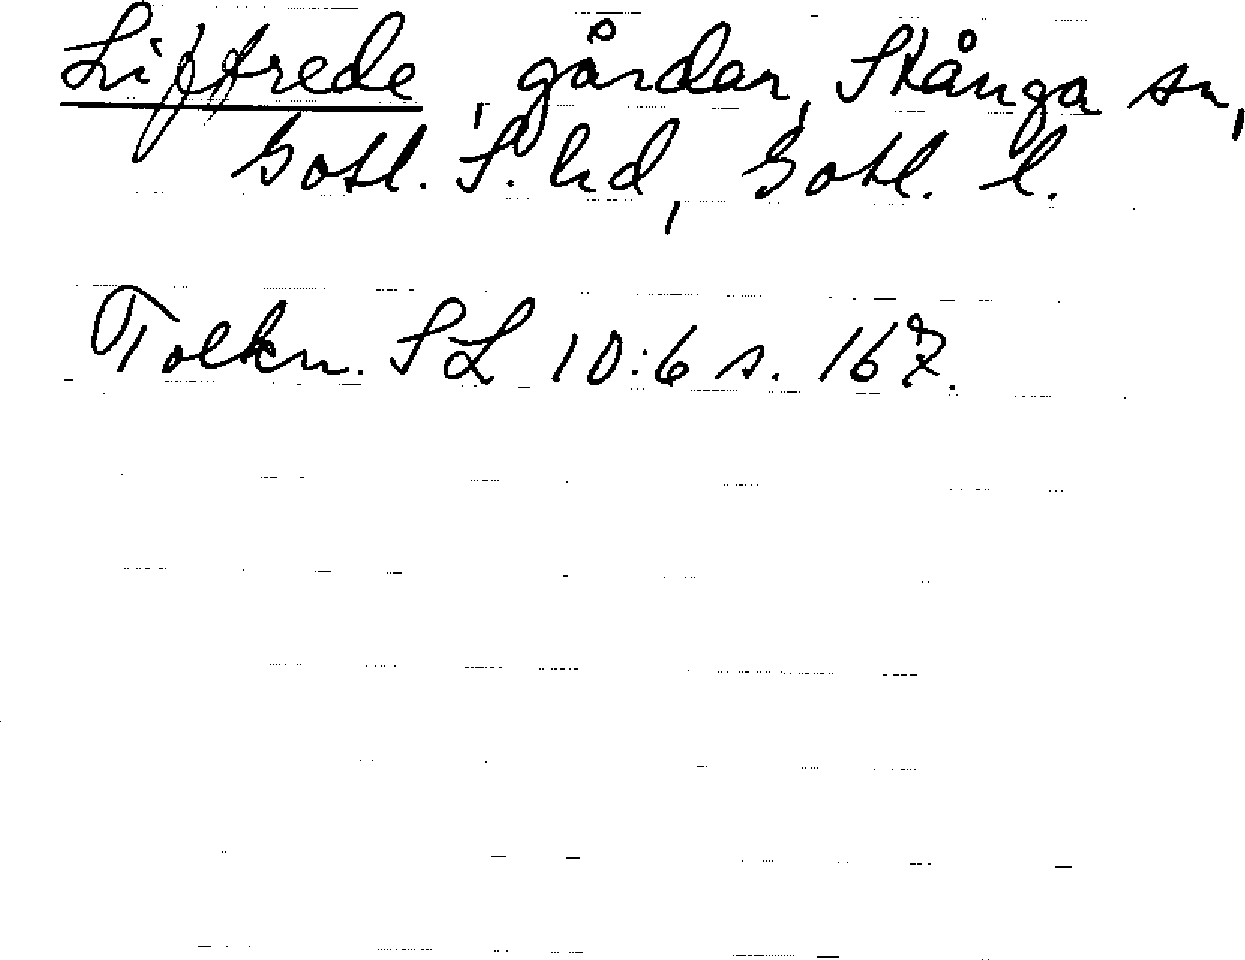 Liffrede, gårdar, Stånga sn,
Gotl. S. hd, Gotl. l.
Tolkn. SL 10:6 s. 167.